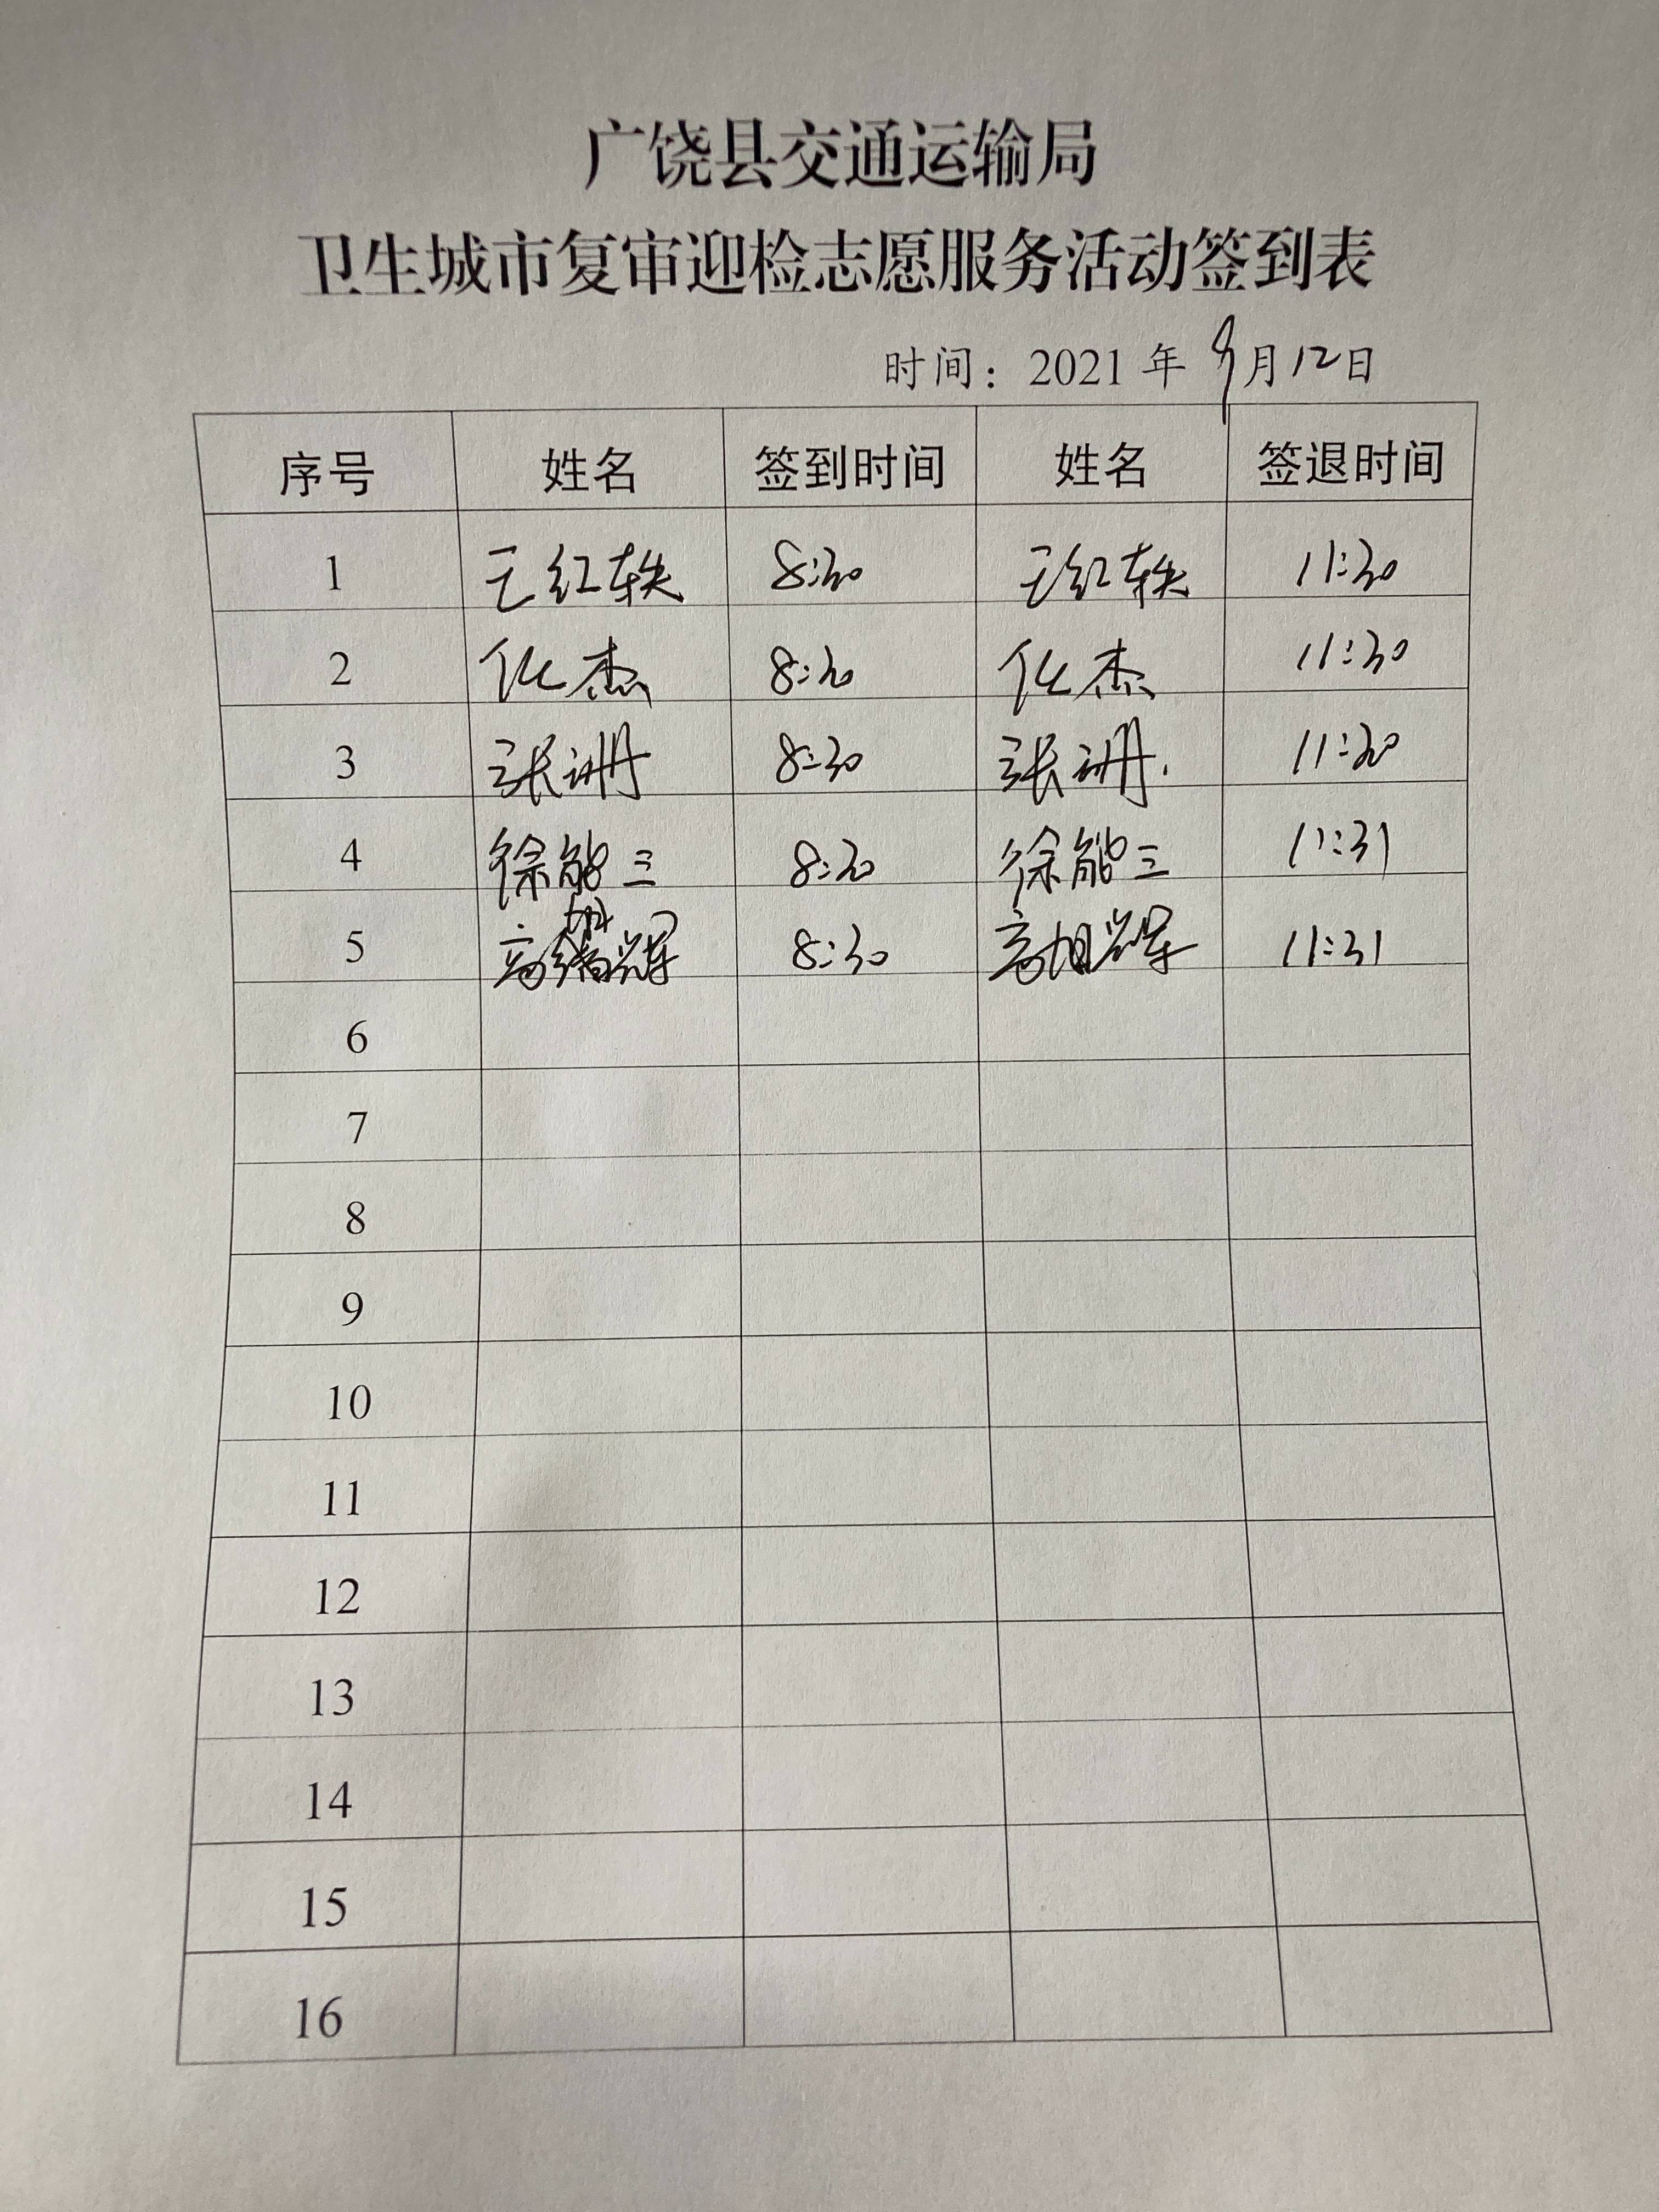 广饶县交通运输局
卫生城市复审迎检志愿服务活动签到表
时间：2021年9月12日
序号 姓名 签到时间 姓名 签退时间
1 王红轶 8:30 王红轶 11:30
2 化杰 8:30 化杰 11:30
3 张 8:30 张 11:30
4 徐能三 8:30 徐能三 11:31
5 高旭辉 8:30 高旭辉 11:31
6
7
8
9
10
11
12
13
14
15
16